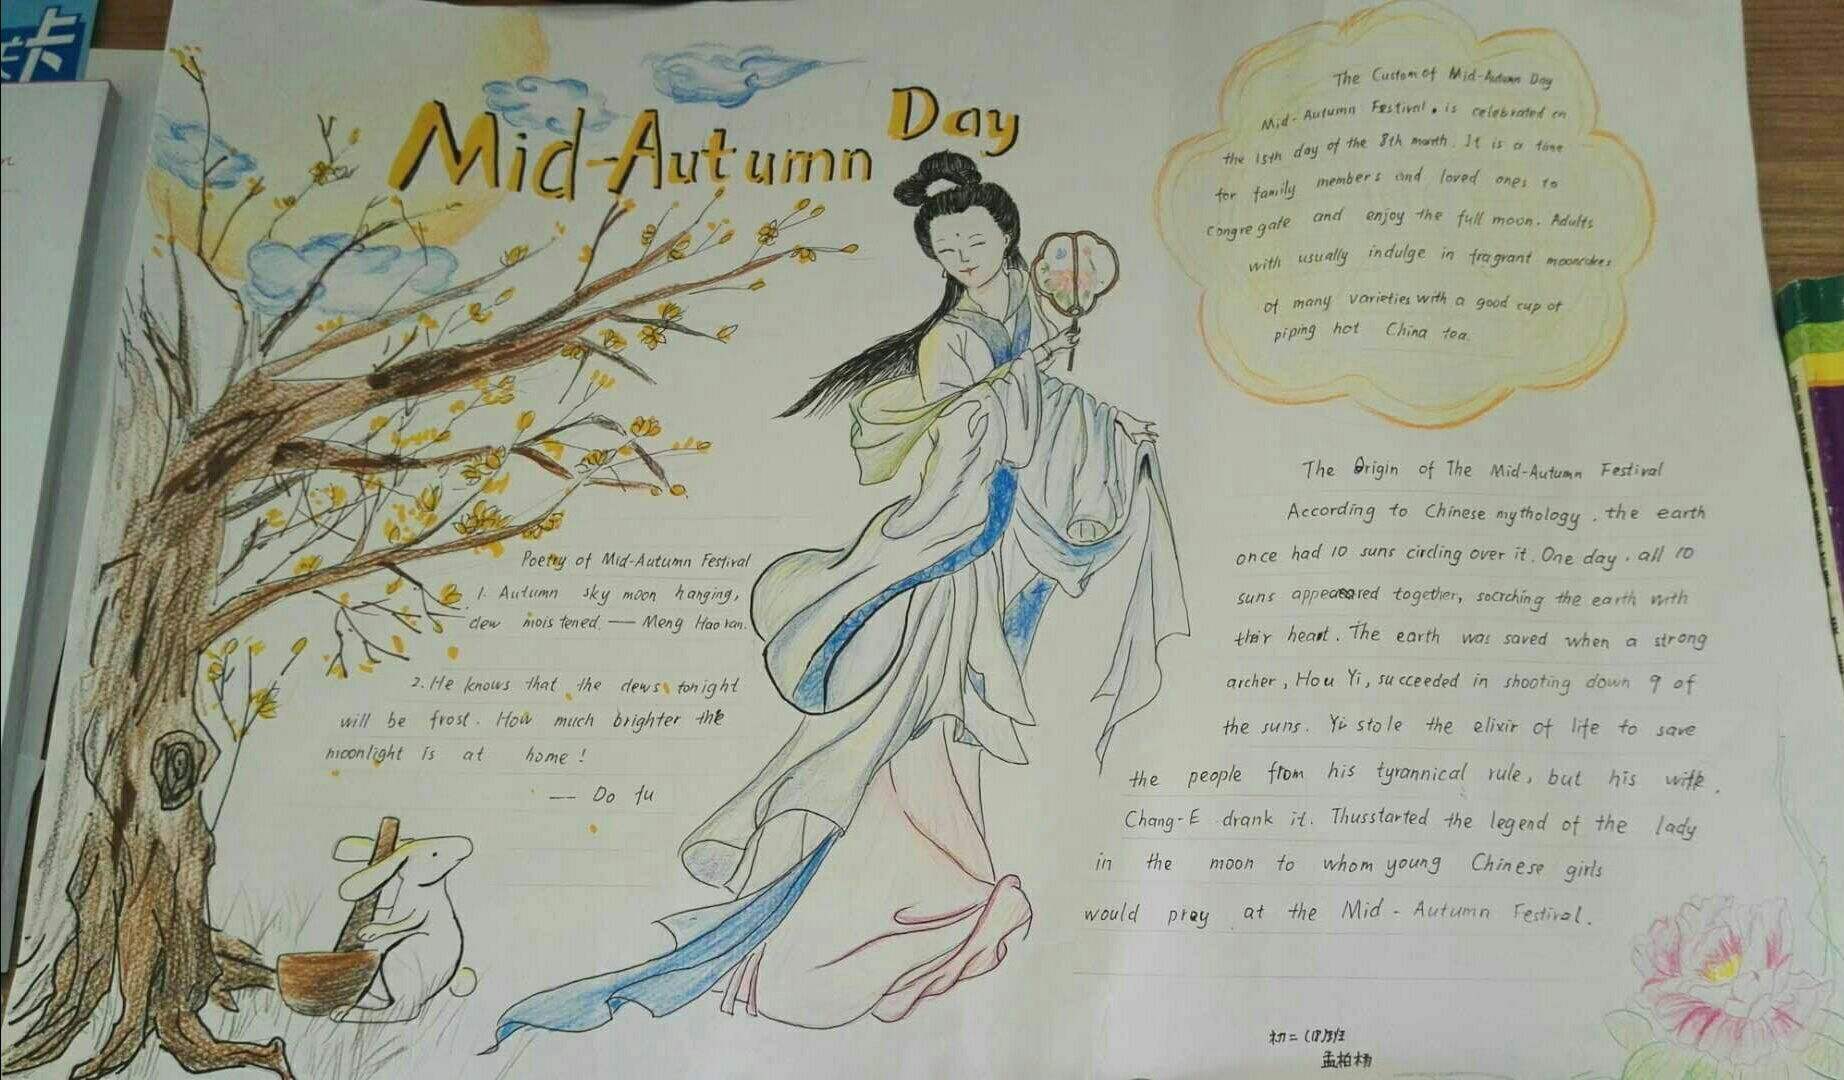 卡
Mid-Autumn Day
The Custom of Mid-Autumn Day
Mid-Autumn Festival. is celebrated on
the 15th day of the 8th month. It is a time
for family members and loved ones to
congregate and enjoy the full moon. Adults
with usually indulge in fragrant mooncakes
of many varieties with a good cup of
piping hot China tea.
Poetry of Mid-Autumn Festival
1. Autumn sky moon hanging,
dew moistened. — Meng Haoran.
2. He knows that the dews tonight
will be frost. How much brighter the
moonlight is at home!
— Do fu
The Origin of The Mid-Autumn Festival
According to Chinese mythology. the earth
once had 10 suns circling over it. One day. all 10
suns appeared together, socrching the earth with
thir heat. The earth was saved when a strong
archer, Hou Yi, succeeded in shooting down 9 of
the suns. Yi stole the elixir of life to save
the people from his tyrannical rule, but his wife.
Chang-E drank it. Thusstarted the legend of the lady
in the moon to whom young Chinese girls
would pray at the Mid-Autumn Festival.
初二(18)班
孟柏杨